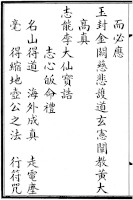 而必應
玉封金闕慈悲護道玄憲闡教黃大
高真
志龍孚大仙寶誥
志心皈命禮
名山得道　海外成真　走電塵
毫　得縮地壺公之法　行符咒